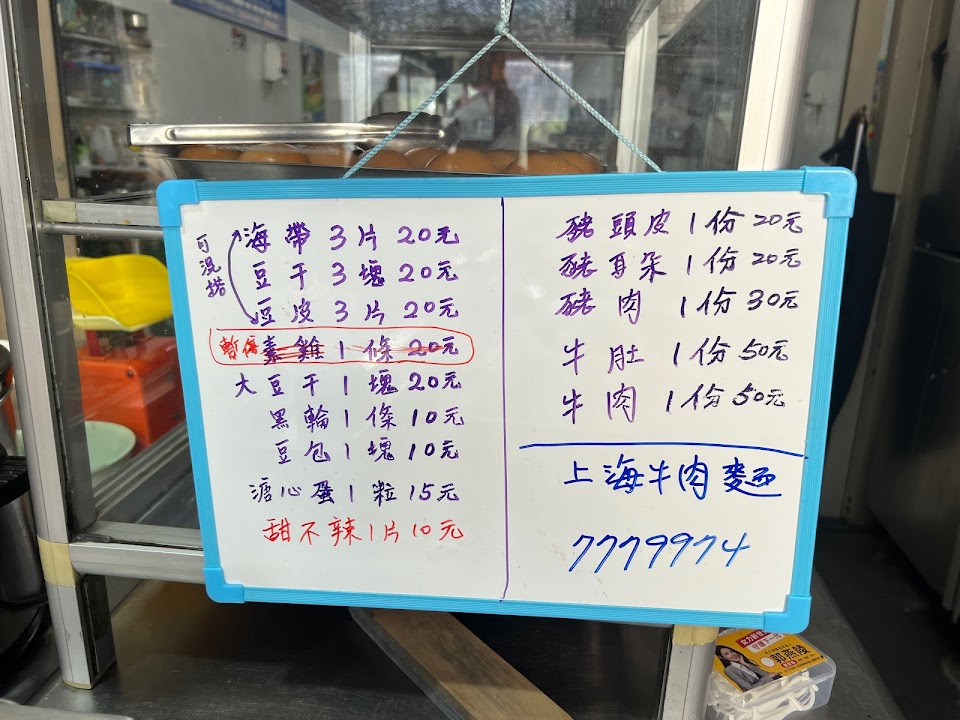 可混搭
海帶 3片 20元
豆干 3塊 20元
豆皮 3片 20元
暫停 素雞 1條 20元
大豆干 1塊 20元
黑輪 1條 10元
豆包 1塊 10元
溏心蛋 1粒 15元
甜不辣 1片 10元
豬頭皮 1份 20元
豬耳朵 1份 20元
豬肉 1份 30元
牛肚 1份 50元
牛肉 1份 50元
上海牛肉麵
7779974
郭燕陵